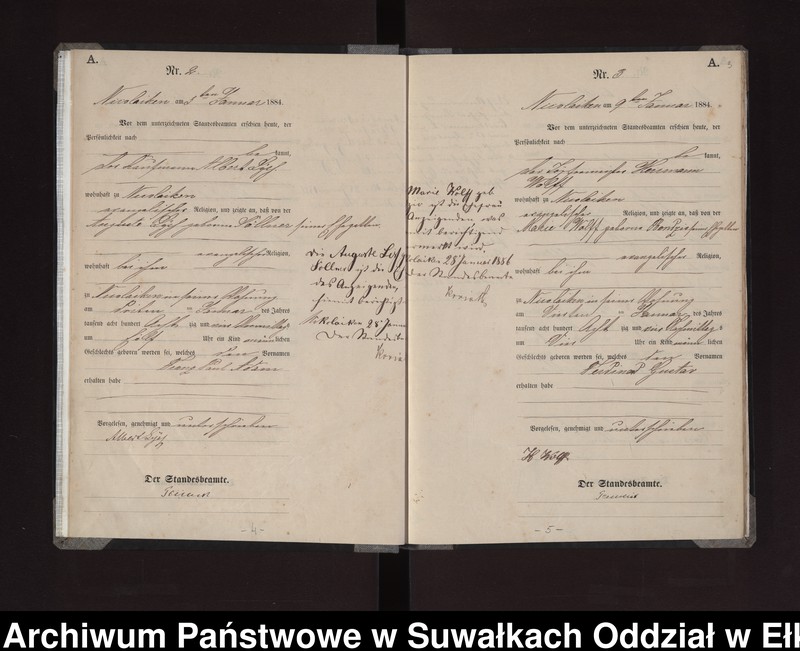 A.
Nr. 2
Nicolaiken am 5ten Januar 1884.
Vor dem unterzeichneten Standesbeamten erschien heute, der
Persönlichkeit nach
be kannt,
der Kaufmann Albert
wohnhaft zu Nicolaiken
evangelischer Religion, und zeigte an, daß von der
Auguste geborene Söllner seiner Ehegattin
evangelischer Religion,
wohnhaft bei ihm
zu Nicolaiken in seiner Wohnung
am Januar des Jahres
tausend acht hundert acht zig und vier Vormittags
um Uhr ein Kind männlichen
Geschlechts geboren worden sei, welches den Vornamen
Franz Paul
erhalten habe
Vorgelesen, genehmigt und unterschrieben
Albert
Der Standesbeamte.
- 4 -
Die Auguste geb
Söllner ist die
des Anzeigenden,
hiermit berichtigt
Nikolaiken 28 Januar
Der Standesbeamte
Marie Wolff geb
ist die Ehefrau
Anzeigenden was
mit berichtigend
vermerkt wird.
Nikolaiken 28 Januar 1886
Der Standesbeamte
A.
Nr. 3
Nicolaiken am 9ten Januar 1884.
Vor dem unterzeichneten Standesbeamten erschien heute, der
Persönlichkeit nach
be kannt,
der Herrmann
Wolff
wohnhaft zu Nicolaiken
evangelischer Religion, und zeigte an, daß von der
Marie Wolff geborene seiner Ehegattin
evangelischer Religion,
wohnhaft bei ihm
zu Nicolaiken in seiner Wohnung
am Januar des Jahres
tausend acht hundert acht zig und vier Nachmittags
um Vier Uhr ein Kind männlichen
Geschlechts geboren worden sei, welches den Vornamen
Ferdinand Gustav
erhalten habe
Vorgelesen, genehmigt und unterschrieben
H Wolff
Der Standesbeamte.
- 5 -
Archiwum Państwowe w Suwałkach Oddział w Ełk